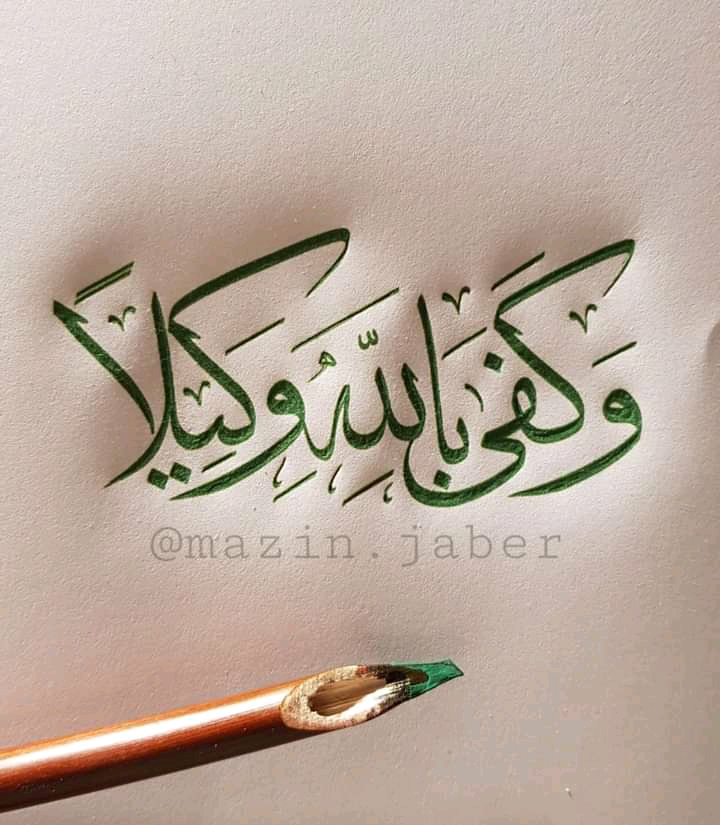 وَكَفَىٰ بِاللَّهِ وَكِيلاً
@mazin.jaber